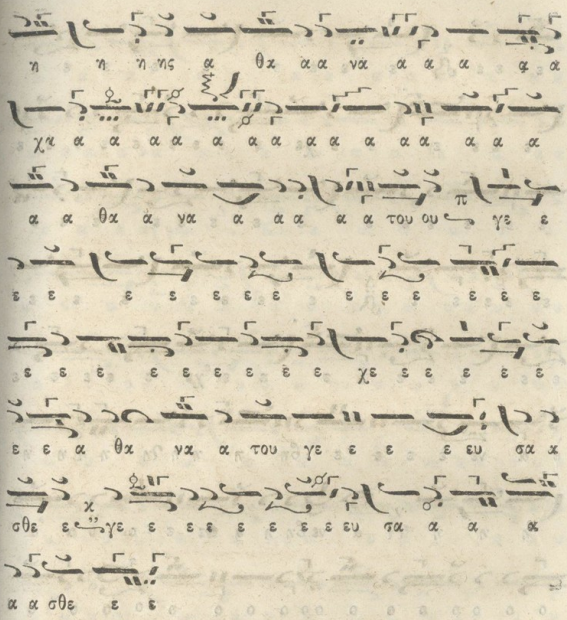 η η η ης α θα α α να α α α α α
χα α α α α α α α α α α α α α
α α θα α να α α α α α του ου γε ε
ε ε ε ε ε ε ε ε ε ε ε ε ε
ε ε ε ε ε ε ε ε χε ε ε ε ε ε
ε ε α θα να α του γε ε ε ε ε ευ σα α
σθε ε γε ε ε ε ε ε ε ε ευ σα α α α
α α σθε ε ε